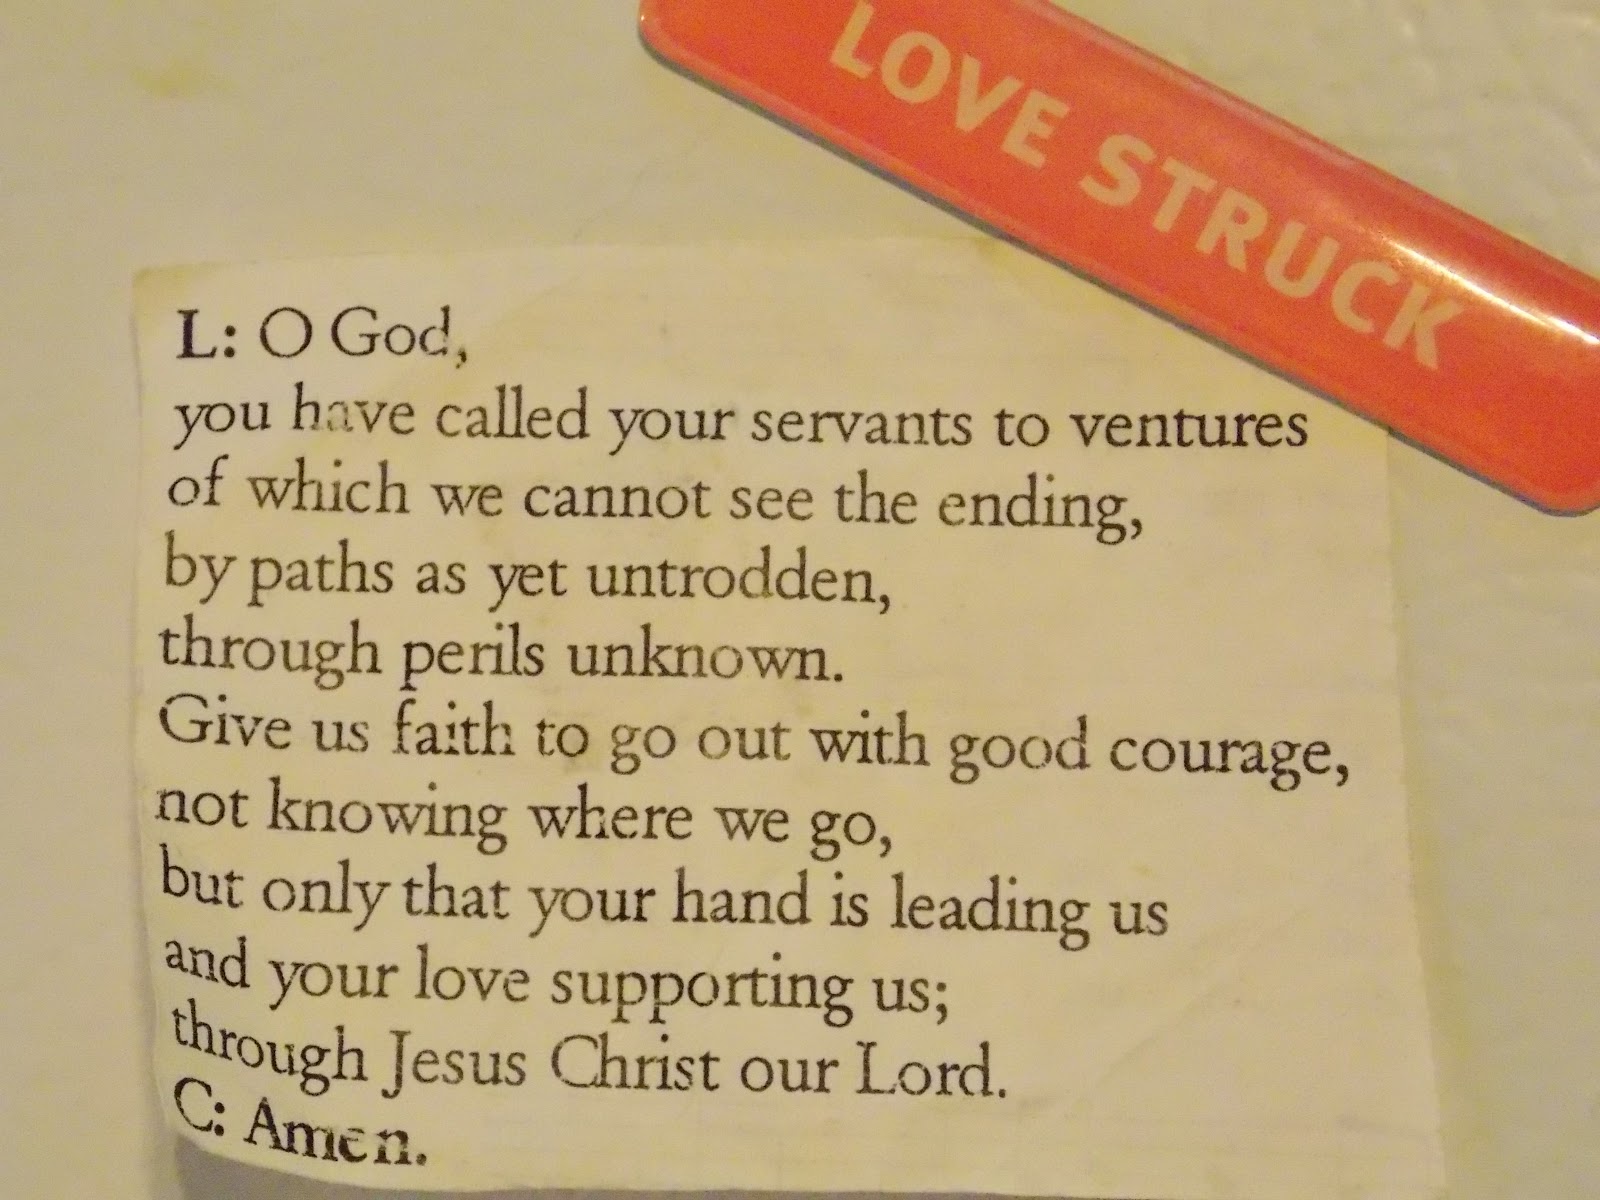 LOVE STRUCK
L: O God,
you have called your servants to ventures
of which we cannot see the ending,
by paths as yet untrodden,
through perils unknown.
Give us faith to go out with good courage,
not knowing where we go,
but only that your hand is leading us
and your love supporting us;
through Jesus Christ our Lord.
C: Amen.